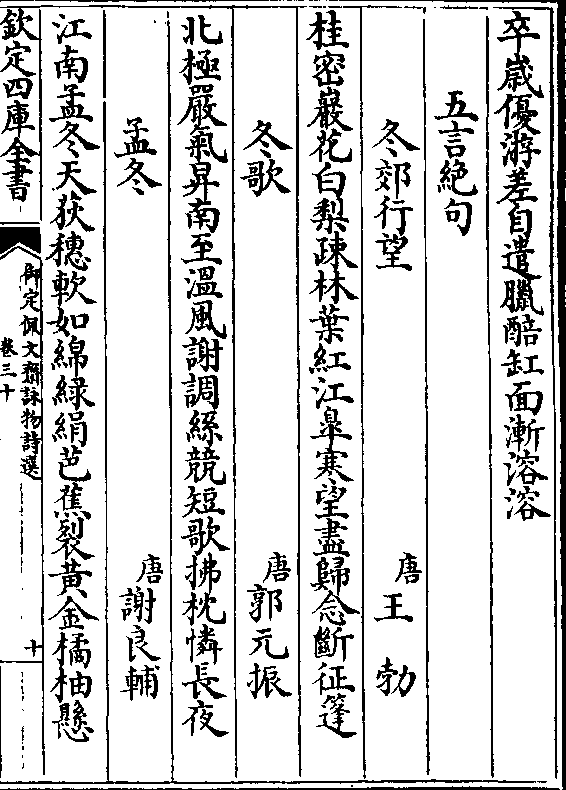 卒歳優游差自遣臘醅缸面漸溶溶
五言絶句
冬郊行望 唐 王 勃
桂密巖花白梨疎林葉紅江臯寒望盡歸念斷征篷
冬歌 唐 郭元振
北極嚴氣昇南至温風謝調絲競短歌拂枕憐長夜
孟冬 唐 謝良輔
江南孟冬天荻穗軟如綿緑絹芭蕉裂黄金橘柚懸
欽定四庫全書
御定佩文齋詠物詩選
卷三十
十